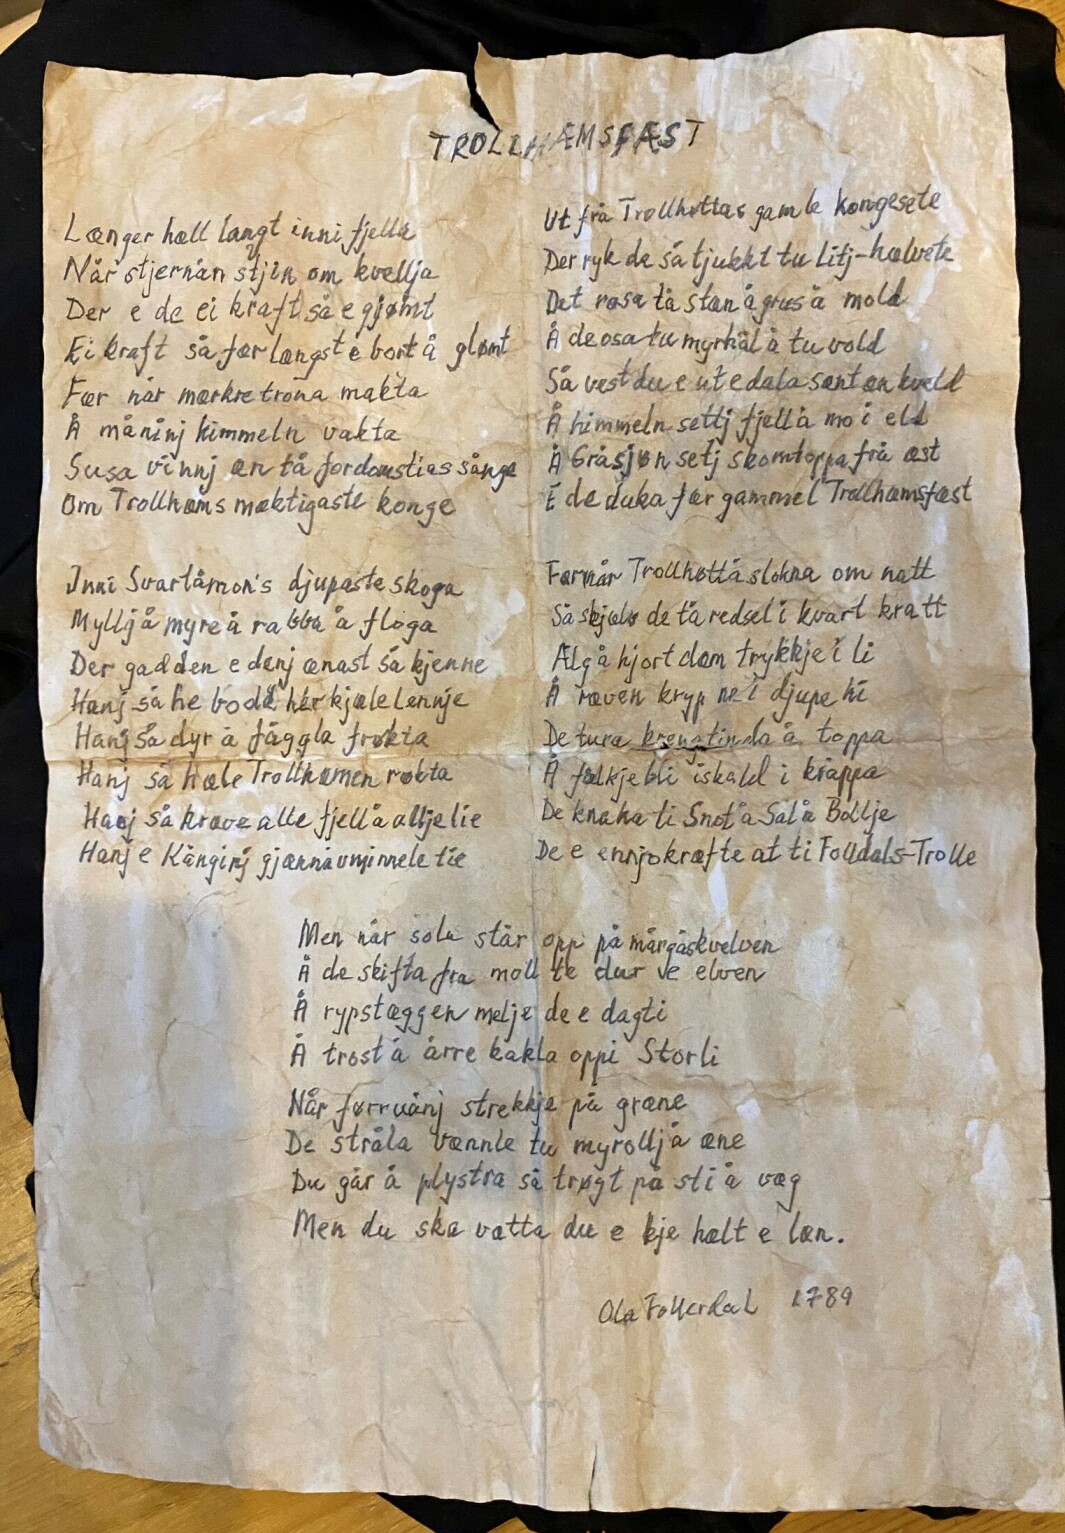 TROLLHÆMSFÆST
Længer hæll langt inni fjella
Når stjernån stjin om kvellja
Der e de ei kraft så e gjømt
Ei kraft så fær længst e bort å glømt
Fær når mørkre trona makta
Å måninj himmeln vakta
Susa vinnj æn tå fordomstias sånge
Om Trollhæms mæktigaste konge
Inni Svartåmon's djupaste skoga
Mylljå myre å rabba å floga
Der gadden e denj ænast så kjenne
Hanj så he bodd her kjæle lennje
Hanj så dyr å fåggla frøkta
Hanj så hæle Trollhæmen røkta
Hanj så kræve alle fjell å alljе lie
Hanj e Kånginj gjænnå unjinnele tie
Ut frå Trollhøttas gamle kongesete
Der ryk de så tjukkt tu Litj-hælvete
Det rasa tå stæn å grus å mold
Å de osa tu myrhål å tu vold
Så væst du e ute dala sænt æn kveld
Å himmeln settj fjellå mo i eld
Å Gråsjøn setj skomtoppa frå æst
E de duka fær gammel Trollhæmsfæst
Før når Trollhøttå slokna om natt
Så skjælv de tå redsel i kvart kratt
Ælg å hjort dom trykkje i li
Å ræven kryp ne i djupe hi
De tura kring tinda å toppa
Å følkje bli iskald i kråppa
De knaka ti Snota Salå Bollje
De e ennjo kræfte att ti Folldals-Trolle
Men når sola står opp på mårgåskvelven
Å de skifta fra moll te dur ve elven
Å rypstæggen melje de e dagti
Å trost å årre kakla oppi Storli
Når førruånj strekkje på græne
De stråla vænnle tu myrolljå æne
Du går å plystra så trøgt på sti å væg
Men du ska vætta du e kje hælt e læn.
Ola Follerdal 1789